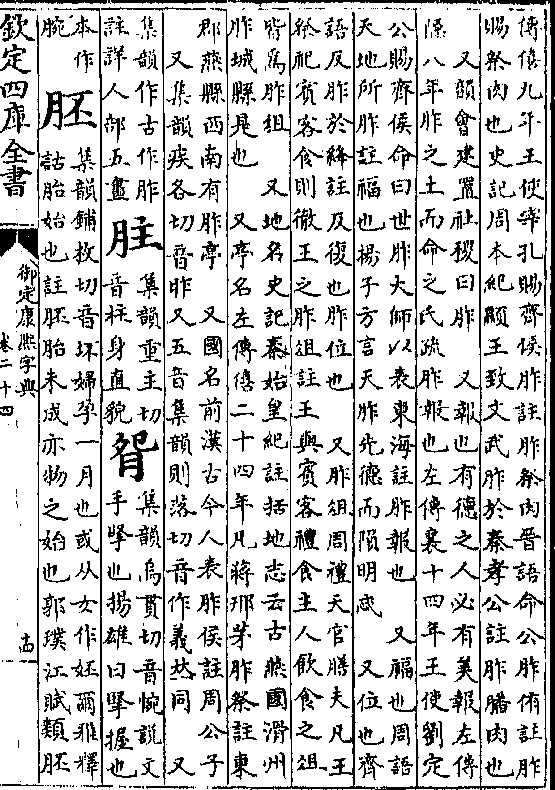 傳僖九年王使宰孔賜齊侯胙註胙祭肉晉語命公胙侑註胙
賜祭肉也史記周本紀顯王致文武胙於秦孝公註胙膰肉也
又韻會建置社稷曰胙　又報也有德之人必有美報左傳
隱八年胙之土而命之氏疏胙報也左傳襄十四年王使劉定
公賜齊侯命曰世胙大師以表東海註胙報也　又福也周語
天地所胙註福也揚子方言天胙光德而隕明忒　又位也齊
語反胙於絳註反復也胙位也　又胙俎周禮天官膳夫凡王
祭祀賓客食則徹王之胙俎註王與賓客禮食主人飲食之俎
皆爲胙俎　又地名史記秦始皇紀註括地志云古燕國滑州
胙城縣是也　又亭名左傳僖二十四年凡蔣邢茅胙祭註東
郡燕縣西南有胙亭　又國名前漢古今人表胙侯註周公子
又集韻疾各切音昨又五音集韻則落切音作義𠀤同　又
集韻作古作胙
註詳人部五畫
𦙴
集韻重主切
音柱身直貌
集韻烏貫切音惋說文
手掔也揚雄曰掔握也
本作
腕
胚
集韻鋪枚切音坏婦孕一月也或从女作妚爾雅釋
詁胎始也註胚胎未成亦物之始也郭璞江賦類胚
欽定四庫全書
御定康熙字典
卷二十四